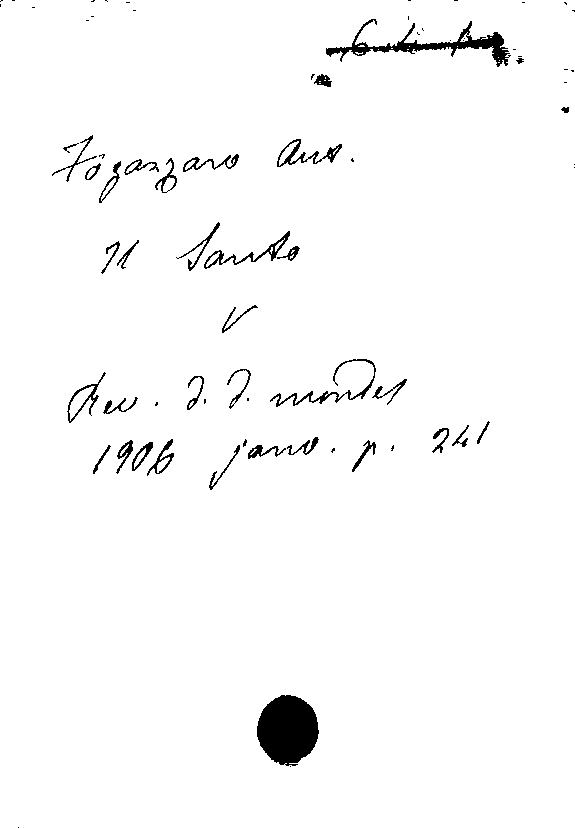 Fogazzaro Ant.
Il Santo
V
Rev. d. d. mondes
1906 janv. p. 241